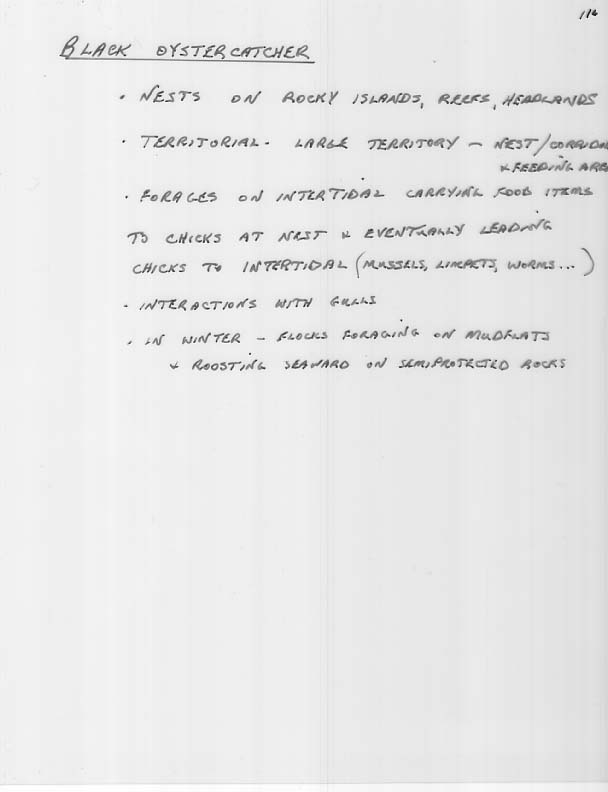 116
BLACK OYSTERCATCHER
· NESTS ON ROCKY ISLANDS, REEFS, HEADLANDS
· TERRITORIAL - LARGE TERRITORY - NEST/CORRIDOR
& FEEDING AREA
· FORAGES ON INTERTIDAL CARRYING FOOD ITEMS
TO CHICKS AT NEST & EVENTUALLY LEADING
CHICKS TO INTERTIDAL (MUSSELS, LIMPETS, WORMS...)
· INTERACTIONS WITH GULLS
· IN WINTER - FLOCKS FORAGING ON MUDFLATS
& ROOSTING SEAWARD ON SEMIPROTECTED ROCKS